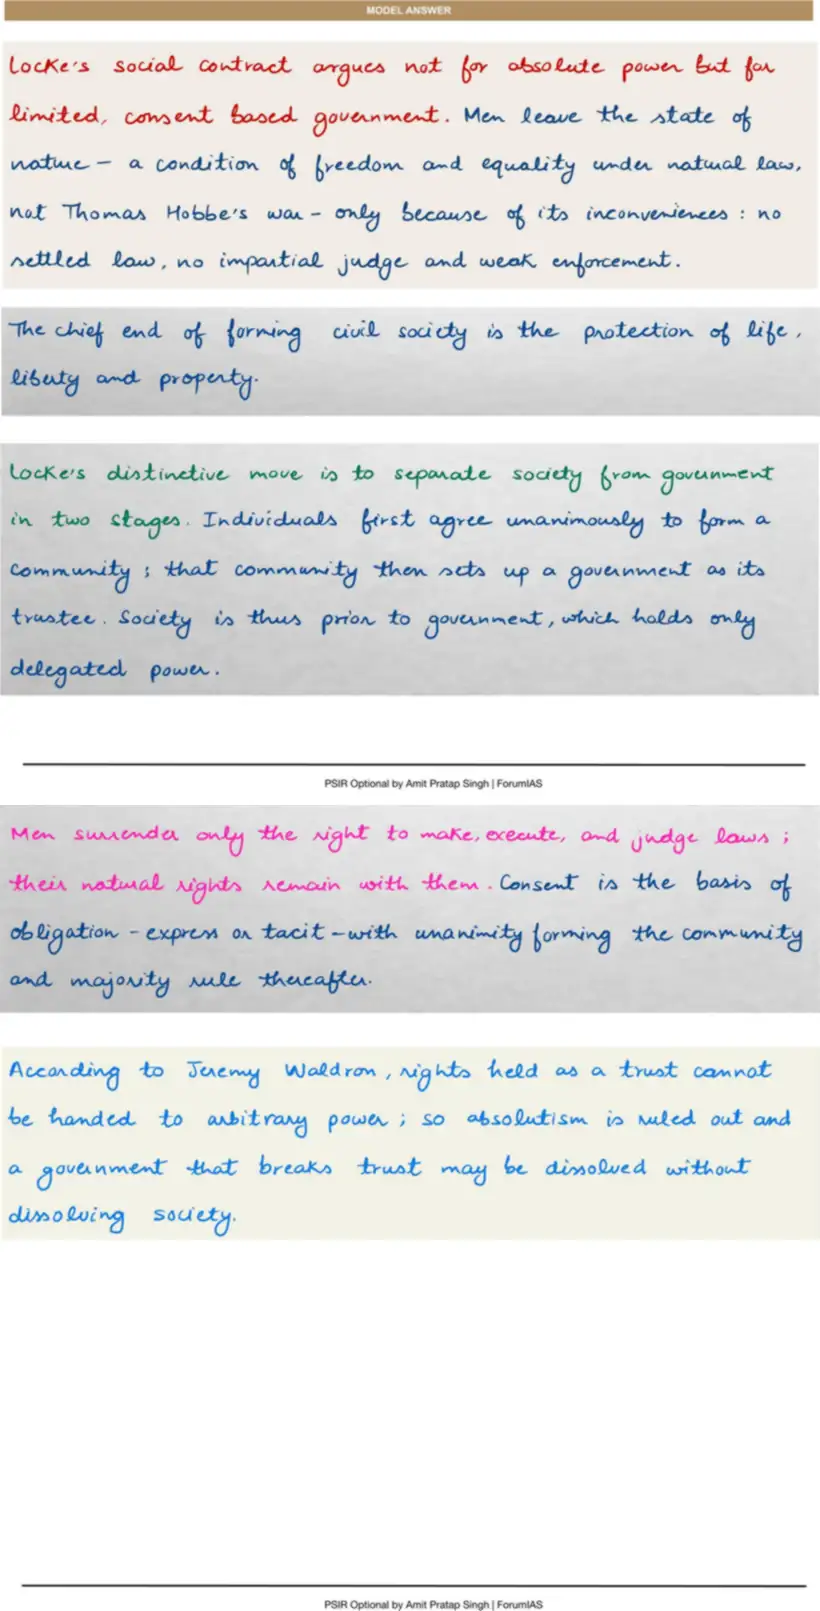 MODEL ANSWER
Locke's social contract argues not for absolute power but for
limited, consent based government. Men leave the state of
nature – a condition of freedom and equality under natural law,
not Thomas Hobbe's war – only because of its inconveniences : no
settled law, no impartial judge and weak enforcement.
The chief end of forming civil society is the protection of life,
liberty and property.
Locke's distinctive move is to separate society from government
in two stages. Individuals first agree unanimously to form a
community ; that community then sets up a government as its
trustee. Society is thus prior to government, which holds only
delegated power.
PSIR Optional by Amit Pratap Singh | ForumIAS
Men surrender only the right to make, execute, and judge laws ;
their natural rights remain with them. Consent is the basis of
obligation – express or tacit – with unanimity forming the community
and majority rule thereafter.
According to Jeremy Waldron, rights held as a trust cannot
be handed to arbitrary power ; so absolutism is ruled out and
a government that breaks trust may be dissolved without
dissolving society.
PSIR Optional by Amit Pratap Singh | ForumIAS